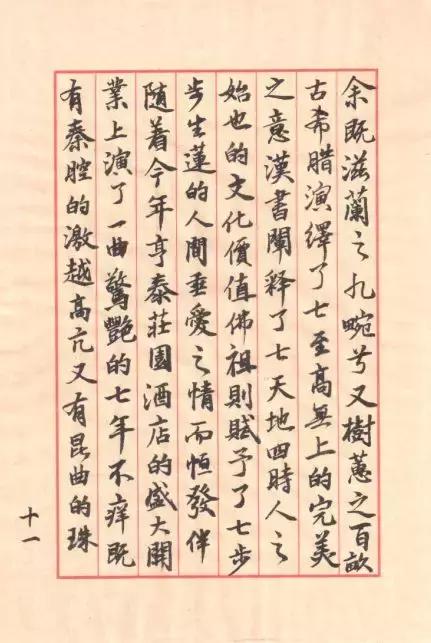 余既滋蘭之九畹兮又樹蕙之百畝
古希腊演繹了七至高無上的完美
之意漢書闡释了七天地四時人之
始也的文化價值佛祖則賦予了七步
步生蓮的人間垂愛之情而恒發伴
随着今年亨泰莊園酒店的盛大開
業上演了一曲驚艷的七年不痒既
有秦腔的激越高亢又有昆曲的珠
十一